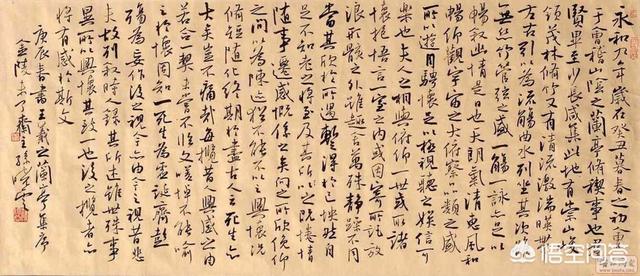 永和九年歲在癸丑暮春之初會
于會稽山陰之蘭亭脩禊事也羣
賢畢至少長咸集此地有崇山峻
領茂林脩竹又有清流激湍暎帶
左右引以為流觴曲水列坐其次雖
無絲竹管弦之盛一觴一詠亦足以
暢敘幽情是日也天朗氣清惠風和
暢仰觀宇宙之大俯察品類之盛
所以遊目騁懷足以極視聽之娛信可
樂也夫人之相與俯仰一世或取諸
懷抱悟言一室之內或因寄所託放
浪形骸之外雖趣舍萬殊靜躁不同
當其欣於所遇蹔得於己快然自
足不知老之將至及其所之既惓情
隨事遷感慨係之矣向之所欣俛仰
之間以為陳迹猶不能不以之興懷況
脩短隨化終期於盡古人云死生亦
大矣豈不痛哉每攬昔人興感之由
若合一契未嘗不臨文嗟悼不能喻
之於懷固知一死生為虛誕齊彭
殤為妄作後之視今亦由今之視昔悲
夫故列敘時人錄其所述雖世殊事
異所以興懷其致一也後之攬者亦
將有感於斯文
庚辰春書王羲之蘭亭集序
金陵未了齋主孫曉雲
悟空问答